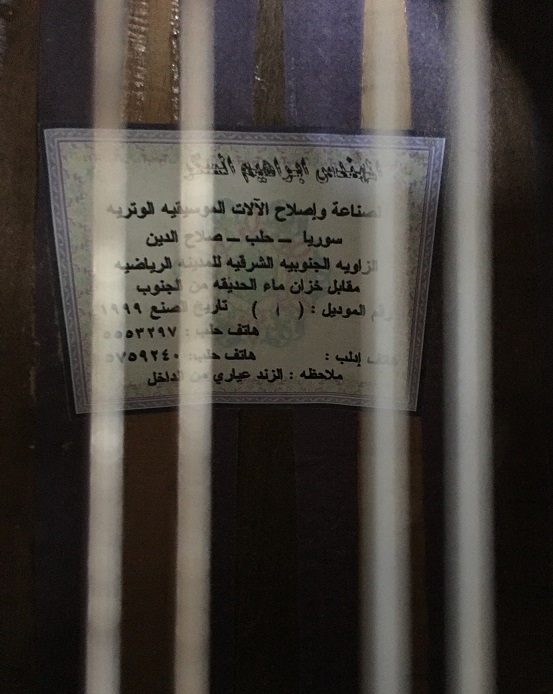 المهندس ابراهيم السكر
لصناعة وإصلاح الآلات الموسيقيه الوتريه
سوريا – حلب – صلاح الدين
الزاويه الجنوبيه الشرقيه للمدينه الرياضيه
مقابل خزان ماء الحديقه من الجنوب
رقم الموديل : ( ١ ) تاريخ الصنع ١٩٩٩
هاتف حلب: ٥٥٥٣٢٩٧
هاتف إدلب : هاتف حلب: ٥٧٥٩٢٤٠
ملاحظه : الزند عياري من الداخل